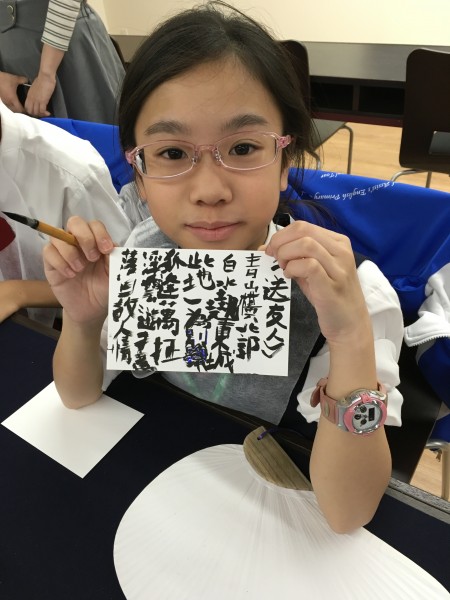 《送友人》
青山橫北郭
白水遶東城
此地一為別
孤蓬萬征
浮雲遊子意
落日故人情
English Primary